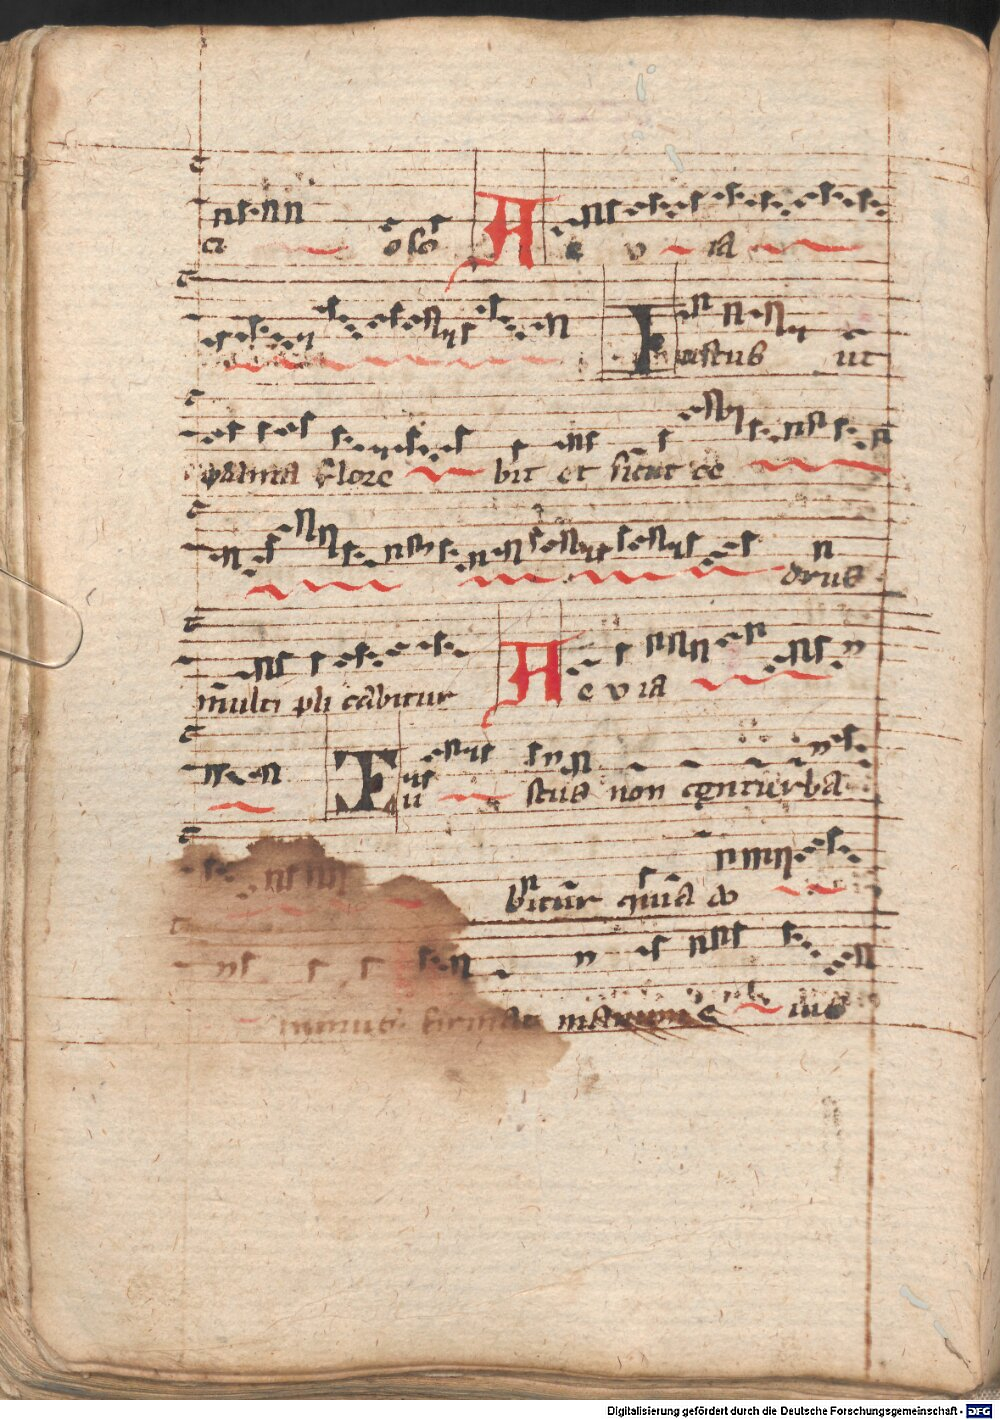 ci oso A e v ia
Iustus ut
palma flore bit et sicut ce
drus
multi pli cabitur A e v ia
Iu stus non conturba
bitur quia do
minus firmat manum e ius
Digitalisierung gefördert durch die Deutsche Forschungsgemeinschaft - DFG